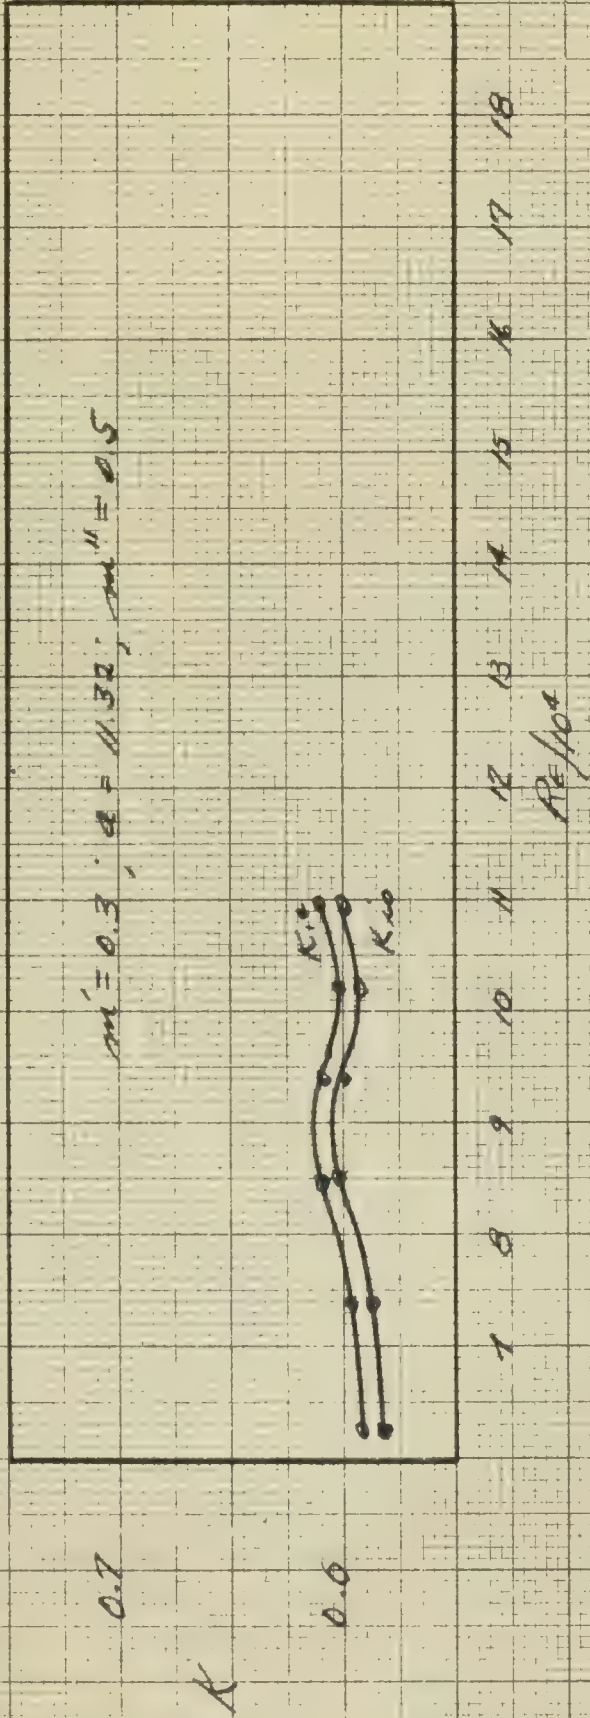 m' = 0.3; a = 11.32; m" = 0.5
K
0.7
0.6
K io
7 8 9 10 11 12 13 14 15 16 17 18
Re/10⁴